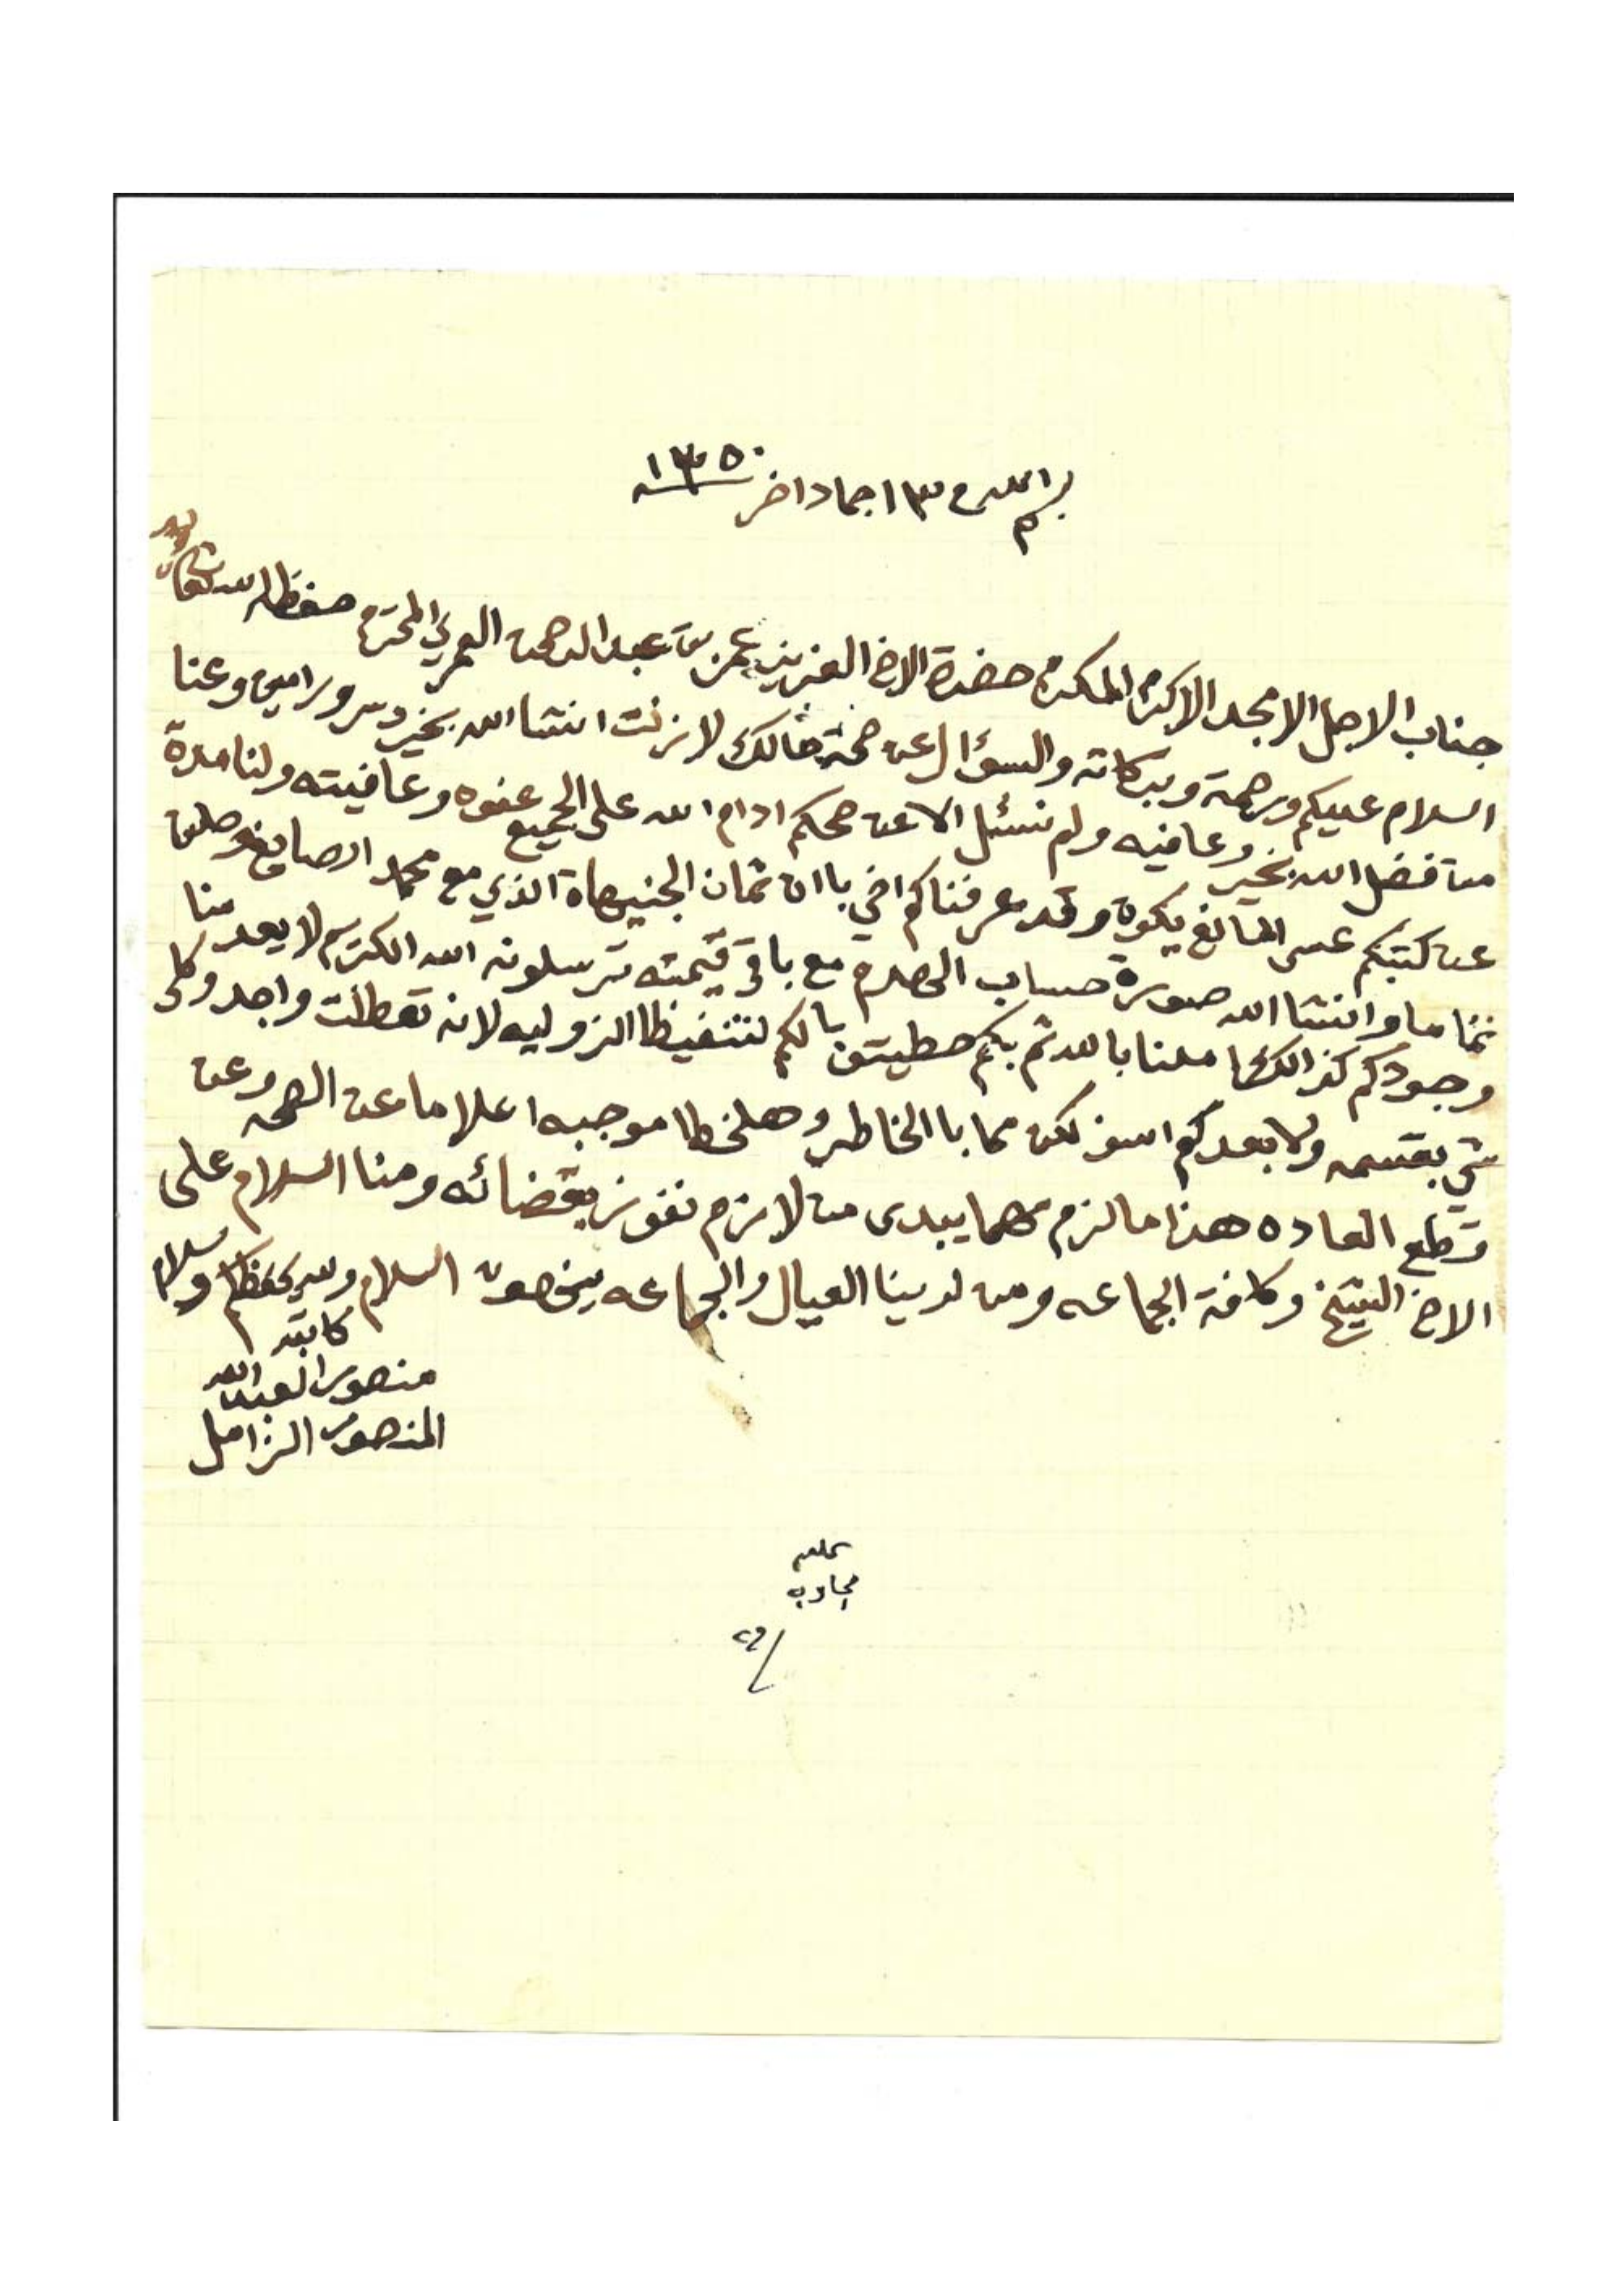 بسم الله ١٣ جماد اخر ١٣٥٠
جناب الاجل الامجد الاكرم المكرم حضرة الاخ العزيز عمر بن عبدالرحمن العمري المحترم حفظه الله تعالى
السلام عليكم ورحمة وبركاته والسؤال عن صحة حالك لا زلت انشا الله بخير وسرور امين وعنا
من فضل الله بخير وعافيه ولم نسئل الا عن صحتكم ادام الله على الجميع عفوه وعافيته ولنا مدة
عن كتبكم عسى المانع يكون وقد عرفناكم اخي باان ثمان الجنيهاة الذي مع محمد الصايغ وصلن
تماما وانشا الله صورة حساب الصرم مع باقي قيمته ترسلونه الله الكريم لا يعدمنا
وجودكم كذالك املنا بالله ثم بكم حطيتون بالكم لتنفيظ الزوليه لانه تعطلت واجد وكل
شي بقسمه ولا بعدكم لكن مما باالخاطر وهلخط موجبه اعلاما عن الصحه وعن
قطع العاده هذا مالزم مهما يبدى من لازم نفوز بقضائه ومنا السلام على
الاخ الشيخ وكافة الجماعه ومن لدينا العيال والجماعه يخصون السلام والله يحفظكم والسلام
كاتبه
منصور العبدالله
المنصور الزامل
مجاوب